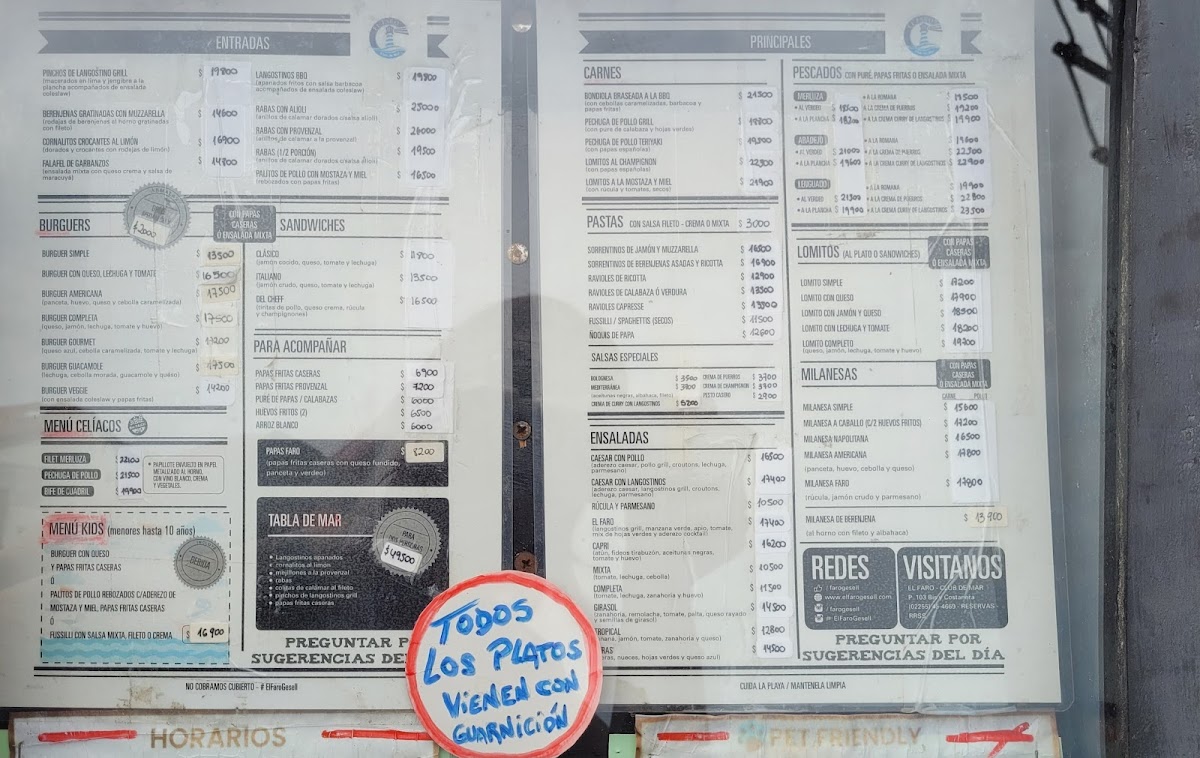 ENTRADAS
PINCHOS DE LANGOSTINO GRILL $ 19800
(macerados en lima y jengibre a la
plancha acompañados de ensalada
coleslaw)
BERENJENAS GRATINADAS CON MUZZARELLA $ 14600
(rodajas de berenjenas al horno gratinadas
con fileto)
CORNALITOS CROCANTES AL LIMÓN $ 16900
(dorados y crocantes con rodajas de limón)
FALAFEL DE GARBANZOS $ 14800
(ensalada mixta con queso crema y salsa de
maracuyá)
LANGOSTINOS BBQ $ 19800
(apanados fritos con salsa barbacoa
acompañados de ensalada coleslaw)
RABAS CON ALIOLI $ 25000
(anillos de calamar dorados c/salsa alioli)
RABAS CON PROVENZAL $ 26000
(anillos de calamar a la provenzal)
RABAS (1/2 PORCIÓN) $ 19500
(anillos de calamar dorados c/salsa alioli)
PALITOS DE POLLO CON MOSTAZA Y MIEL $ 16500
(rebozados con papas fritas)
BURGUERS
CON PAPAS
CASERAS
O ENSALADA MIXTA
BURGUER SIMPLE $ 13500
BURGUER CON QUESO, LECHUGA Y TOMATE $ 16500
BURGUER AMERICANA $ 17500
(panceta, huevo, queso y cebolla caramelizada)
BURGUER COMPLETA $ 17500
(queso, jamón, lechuga, tomate y huevo)
BURGUER GOURMET $ 17200
(queso azul, cebolla caramelizada, tomate y lechuga)
BURGUER GUACAMOLE $ 17500
(lechuga, cebolla morada, guacamole y queso)
BURGUER VEGGIE $ 14200
(con ensalada coleslaw y papas fritas)
SANDWICHES
CLÁSICO $ 11800
(jamón cocido, queso, tomate y lechuga)
ITALIANO $ 13500
(jamón crudo, queso, tomate y lechuga)
DEL CHEFF $ 16500
(cintas de pollo, queso crema, rúcula
y champignones)
PARA ACOMPAÑAR
PAPAS FRITAS CASERAS $ 6900
PAPAS FRITAS PROVENZAL $ 7200
PURÉ DE PAPAS / CALABAZAS $ 6000
HUEVOS FRITOS (2) $ 6500
ARROZ BLANCO $ 6000
PAPAS FARO $ 8200
(papas fritas caseras con queso fundido,
panceta y verdeo)
MENÚ CELÍACOS
FILET MERLUZA $ 22100
PECHUGA DE POLLO $ 21500
BIFE DE CUADRIL $ 19900
• PAPILLOTE ENVUELTO EN PAPEL
METALIZADO AL HORNO,
CON VINO BLANCO, CREMA
Y VEGETALES.
MENÚ KIDS (menores hasta 10 años)
BURGUER CON QUESO
Y PAPAS FRITAS CASERAS
Ó
PALITOS DE POLLO REBOZADOS C/ADEREZO DE
MOSTAZA Y MIEL, PAPAS FRITAS CASERAS
Ó
FUSSILLI CON SALSA MIXTA, FILETO O CREMA $ 16900
TABLA DE MAR
$ 49500
• Langostinos apanados
• cornalitos al limón
• mejillones a la provenzal
• rabas
• colitas de calamar al fileto
• pinchos de langostinos grill
• papas fritas caseras
PREGUNTAR P
SUGERENCIAS DE
NO COBRAMOS CUBIERTO - # ElFaroGesell
PRINCIPALES
CARNES
BONDIOLA BRASEADA A LA BBQ $ 21500
(con cebollas caramelizadas, barbacoa y
papas fritas)
PECHUGA DE POLLO GRILL $ 18800
(con puré de calabaza y hojas verdes)
PECHUGA DE POLLO TERIYAKI $ 19500
(con papas españolas)
LOMITOS AL CHAMPIGNON $ 22900
(con papas españolas)
LOMITOS A LA MOSTAZA Y MIEL $ 21900
(con rúcula y tomates, secos)
PASTAS CON SALSA FILETO - CREMA O MIXTA $ 3000
SORRENTINOS DE JAMÓN Y MUZZARELLA $ 16500
SORRENTINOS DE BERENJENAS ASADAS Y RICOTTA $ 16900
RAVIOLES DE RICOTTA $ 12900
RAVIOLES DE CALABAZA Ó VERDURA $ 13500
RAVIOLES CAPRESSE $ 13900
FUSSILLI / SPAGHETTIS (SECOS) $ 11500
ÑOQUIS DE PAPA $ 12600
SALSAS ESPECIALES
BOLOGNESA $ 3500
MEDITERRÁNEA $ 3700
(aceitunas negras, albahaca, fileto)
CREMA DE CURRY CON LANGOSTINOS $ 5200
CREMA DE PUERROS $ 3700
CREMA DE CHAMPIGNON $ 3700
PESTO CASERO $ 2900
ENSALADAS
CAESAR CON POLLO $ 16500
(aderezo caesar, pollo grill, croutons, lechuga,
parmesano)
CAESAR CON LANGOSTINOS $ 17400
(aderezo caesar, langostinos grill, croutons,
lechuga, parmesano)
RÚCULA Y PARMESANO $ 10500
EL FARO $ 17400
(langostinos grill, manzana verde, apio, tomate,
mix de hojas verdes y aderezo cocktail)
CAPRI $ 16200
(atún, fideos tirabuzón, aceitunas negras,
tomate y huevo)
MIXTA $ 10500
(tomate, lechuga, cebolla)
COMPLETA $ 11500
(tomate, lechuga, zanahoria y huevo)
GIRASOL $ 14500
(zanahoria, remolacha, tomate, palta, queso rayado
y semillas de girasol)
TROPICAL $ 12800
jamón, tomate, zanahoria y queso)
$ 14500
nueces, hojas verdes y queso azul)
PESCADOS CON PURÉ, PAPAS FRITAS O ENSALADA MIXTA
MERLUZA
• AL VERDEO $ 18500
• A LA PLANCHA $ 18200
• A LA ROMANA $ 17500
• A LA CREMA DE PUERROS $ 19200
• A LA CREMA CURRY DE LANGOSTINOS $ 19900
ABADEJO
• AL VERDEO $ 21000
• A LA PLANCHA $ 19600
• A LA ROMANA $ 19600
• A LA CREMA DE PUERROS $ 22300
• A LA CREMA CURRY DE LANGOSTINOS $ 22900
LENGUADO
• AL VERDEO $ 21300
• A LA PLANCHA $ 19900
• A LA ROMANA $ 19900
• A LA CREMA DE PUERROS $ 22800
• A LA CREMA CURRY DE LANGOSTINOS $ 23500
LOMITOS (AL PLATO O SANDWICHES)
CON PAPAS
CASERAS
Ó ENSALADA MIXTA
LOMITO SIMPLE $ 17200
LOMITO CON QUESO $ 17900
LOMITO CON JAMÓN Y QUESO $ 18500
LOMITO CON LECHUGA Y TOMATE $ 18200
LOMITO COMPLETO $ 19700
(queso, jamón, lechuga, tomate y huevo)
MILANESAS
CON PAPAS
CASERAS
Ó ENSALADA MIXTA
CARNE POLLO
MILANESA SIMPLE $ 15600
MILANESA A CABALLO (C/2 HUEVOS FRITOS) $ 17200
MILANESA NAPOLITANA $ 16500
MILANESA AMERICANA $ 17800
(panceta, huevo, cebolla y queso)
MILANESA FARO $ 17800
(rúcula, jamón crudo y parmesano)
MILANESA DE BERENJENA $ 13900
(al horno con fileto y albahaca)
REDES
/ farogesell
www.elfarogesell.com
/ farogesell
# ElFaroGesell
VISITANOS
EL FARO - CLUB DE MAR
P. 103 Bis y Costanera
RESERVAS
RRSS
PREGUNTAR POR
SUGERENCIAS DEL DÍA
CUIDA LA PLAYA / MANTENELA LIMPIA
TODOS
LOS PLATOS
VIENEN CON
GUARNICIÓN
HORARIOS
FRIENDLY